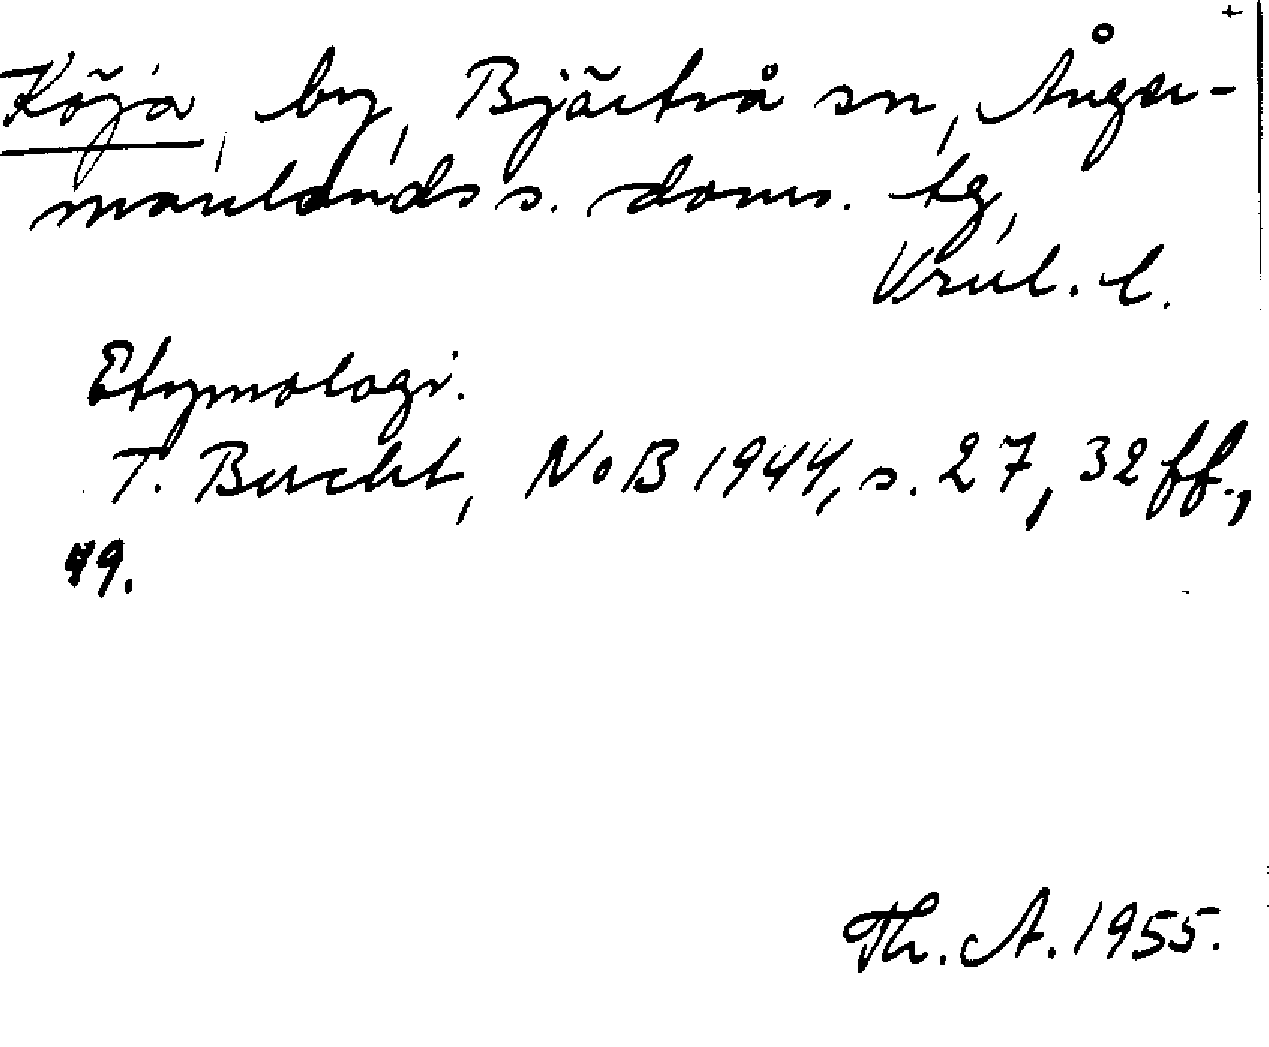 Köja, by, Bjärtrå sn, Ånger-
manlands s. doms. tg,
Vrnl. l.
Etymologi.
T. Bucht, NoB 1944, s. 27, 32 ff.,
49.
Th. A. 1955.